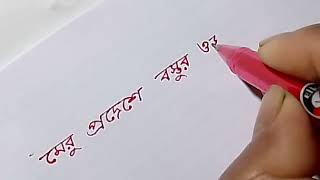 মেরু প্রদেশে বস্তুর ওজ